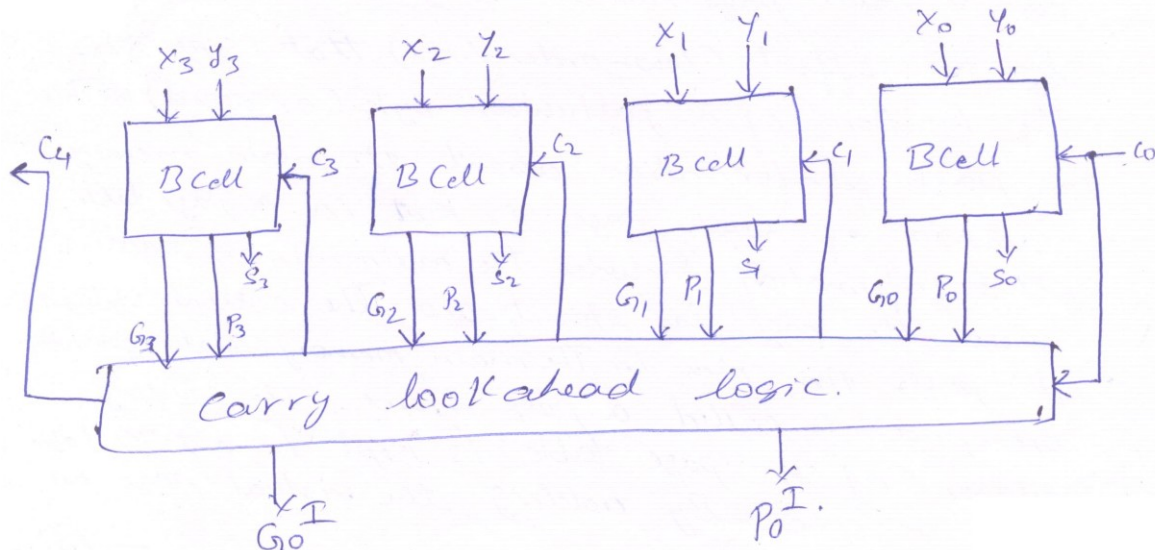 X3 Y3 X2 Y2 X1 Y1 X0 Y0
C4 B Cell C3 B Cell C2 B Cell C1 B Cell C0
G3 P3 S3 G2 P2 S2 G1 P1 S1 G0 P0 S0
Carry lookahead logic.
G0 I P0 I.